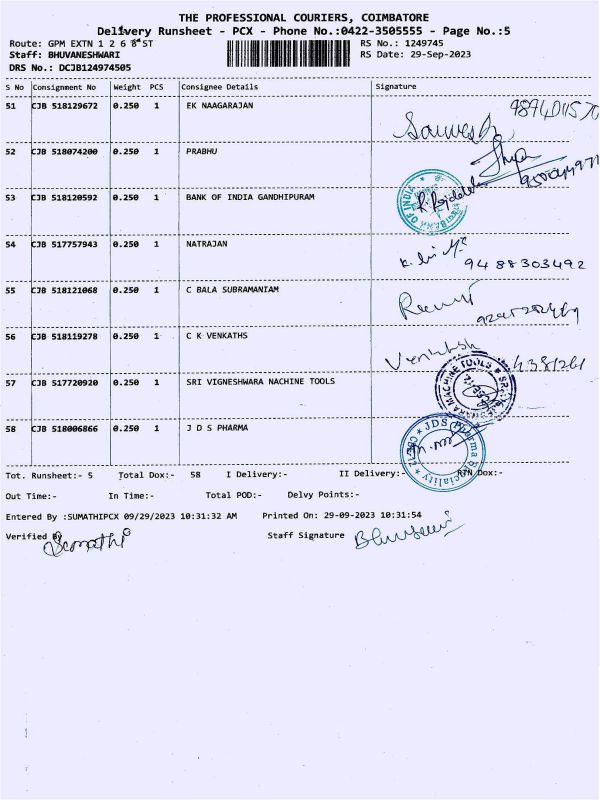 THE PROFESSIONAL COURIERS, COIMBATORE
Delivery Runsheet - PCX - Phone No.:0422-3505555 - Page No.:5
Route: GPM EXTN 1 2 6 8 ST RS No.: 1249745
Staff: BHUVANESHWARI RS Date: 29-Sep-2023
DRS No.: DCJB124974505
S No Consignment No Weight PCS Consignee Details Signature
51 CJB 518129672 0.250 1 EK NAAGARAJAN
52 CJB 518074200 0.250 1 PRABHU
53 CJB 518120592 0.250 1 BANK OF INDIA GANDHIPURAM
54 CJB 517757943 0.250 1 NATRAJAN
9488303492
55 CJB 518121068 0.250 1 C BALA SUBRAMANIAM
56 CJB 518119278 0.250 1 C K VENKATHS
57 CJB 517720920 0.250 1 SRI VIGNESHWARA NACHINE TOOLS
58 CJB 518006866 0.250 1 J D S PHARMA
JDS Pharma Speciality
Tot. Runsheet:- 5 Total Dox:- 58 I Delivery:- II Delivery:- RTN Dox:-
Out Time:- In Time:- Total POD:- Delvy Points:-
Entered By :SUMATHIPCX 09/29/2023 10:31:32 AM Printed On: 29-09-2023 10:31:54
Verified By Staff Signature
Sumathi